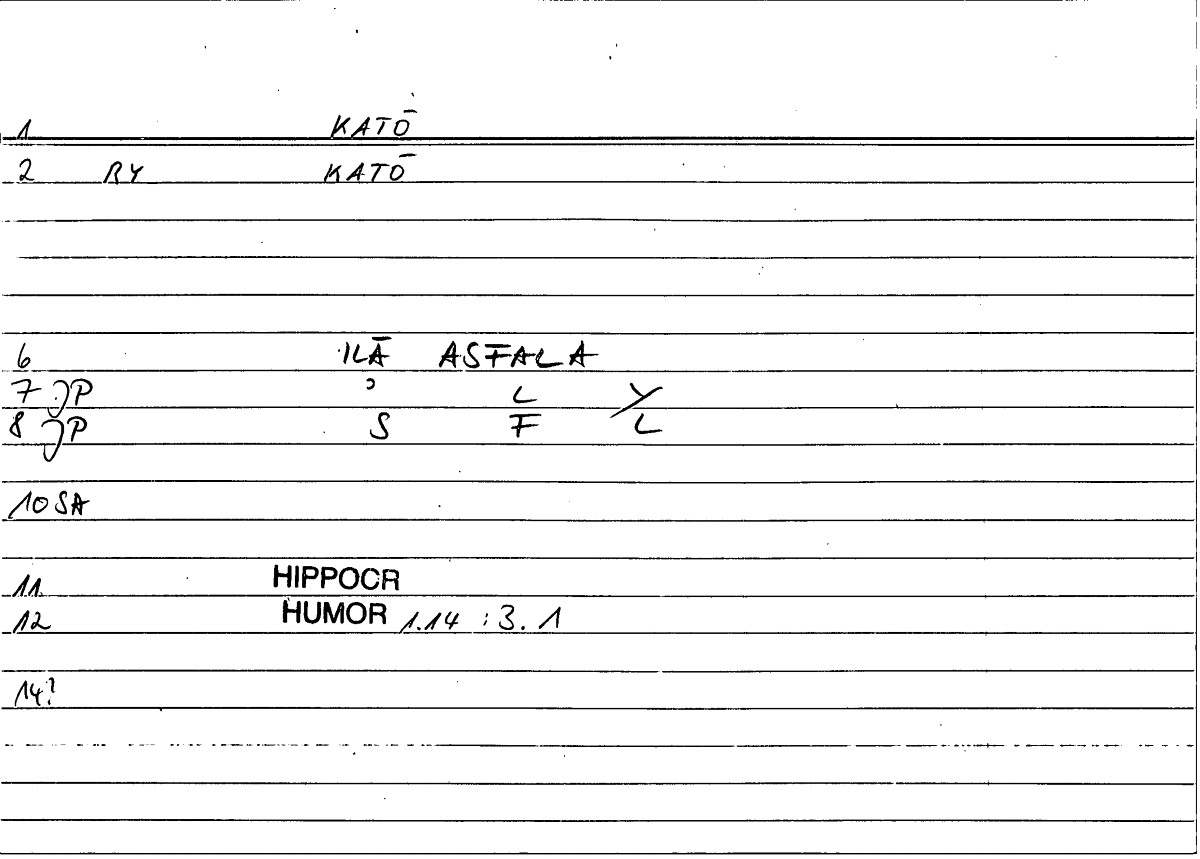 1 KATŌ
2 RY KATŌ
6 ILĀ ASFALA
7 JP ʾ L Y
8 JP S F L
10 SA
11. HIPPOCR
12 HUMOR 1.14 : 3. 1
14?